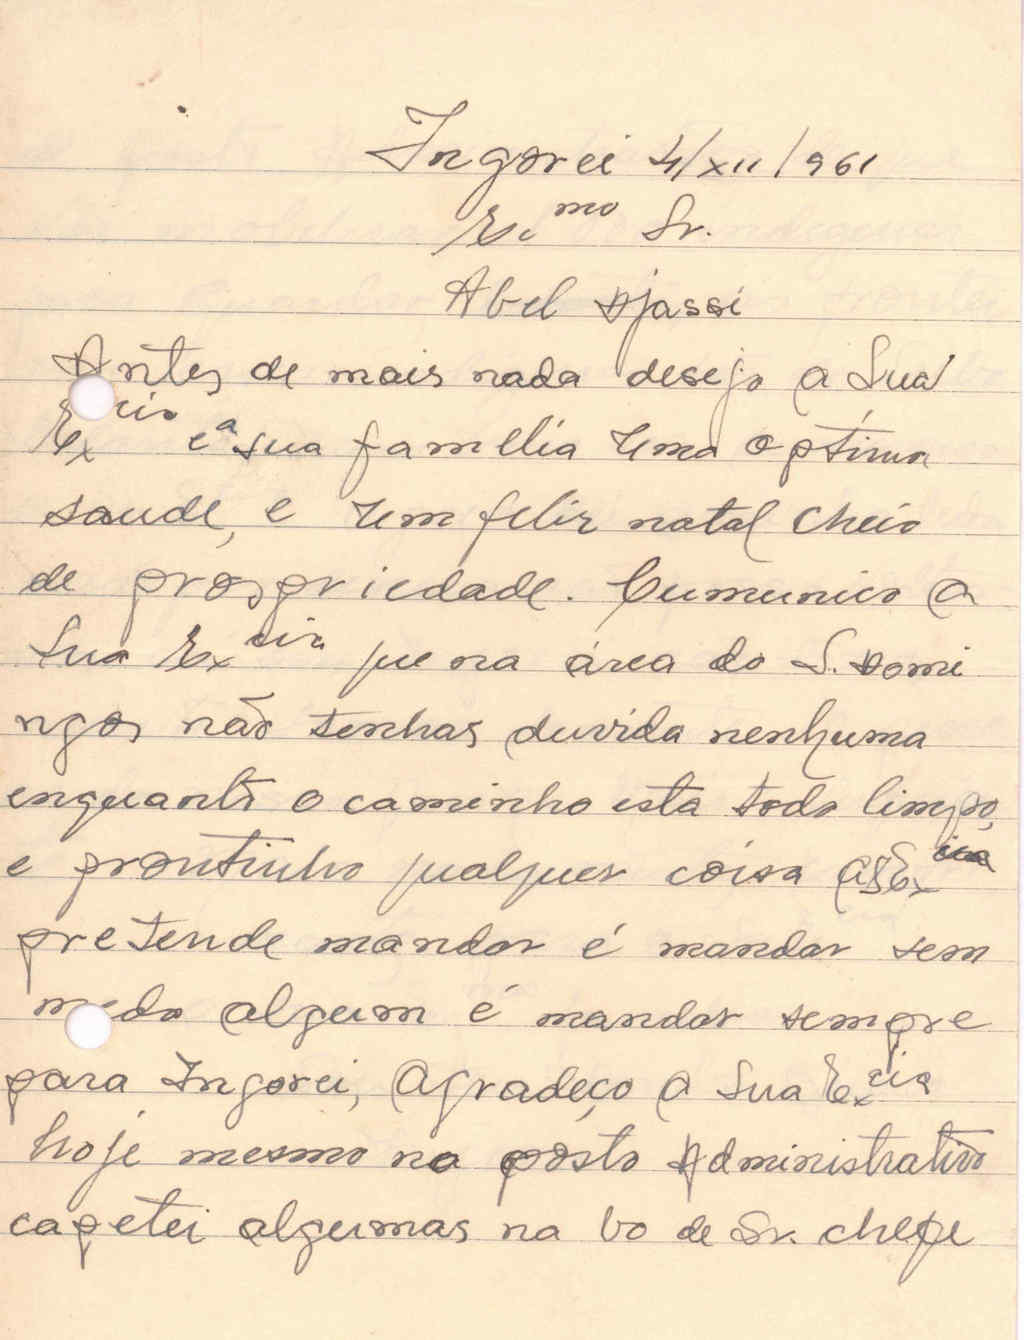 Ingorei 4/XII/961
Ex.mo Sr.
Abel Djassi
Antes de mais nada desejo a Sua
Excia e a sua familia uma optima
saude, e um feliz natal cheio
de prospriedade. Cumunico a
Sua Excia que na área do S. Domi
ngos não tenhas duvida nenhuma
enquanto o caminho esta todo limpo,
e prontinho qualquer coisa a S Excia
pretende mandar é mandar sem
medo algum é mandar sempre
para Ingorei, Agradeço a Sua Excia
hoje mesmo no posto Administrativo
capetei algumas na bo de Sr. chefe